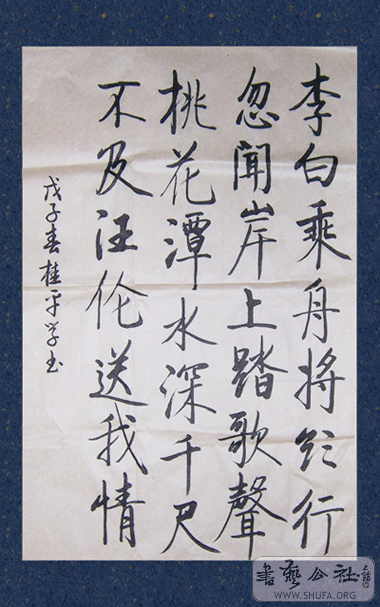 李白乘舟将欲行
忽闻岸上踏歌聲
桃花潭水深千尺
不及汪伦送我情
戊子春桂平学书
書藝公社
WWW.SHUFA.ORG